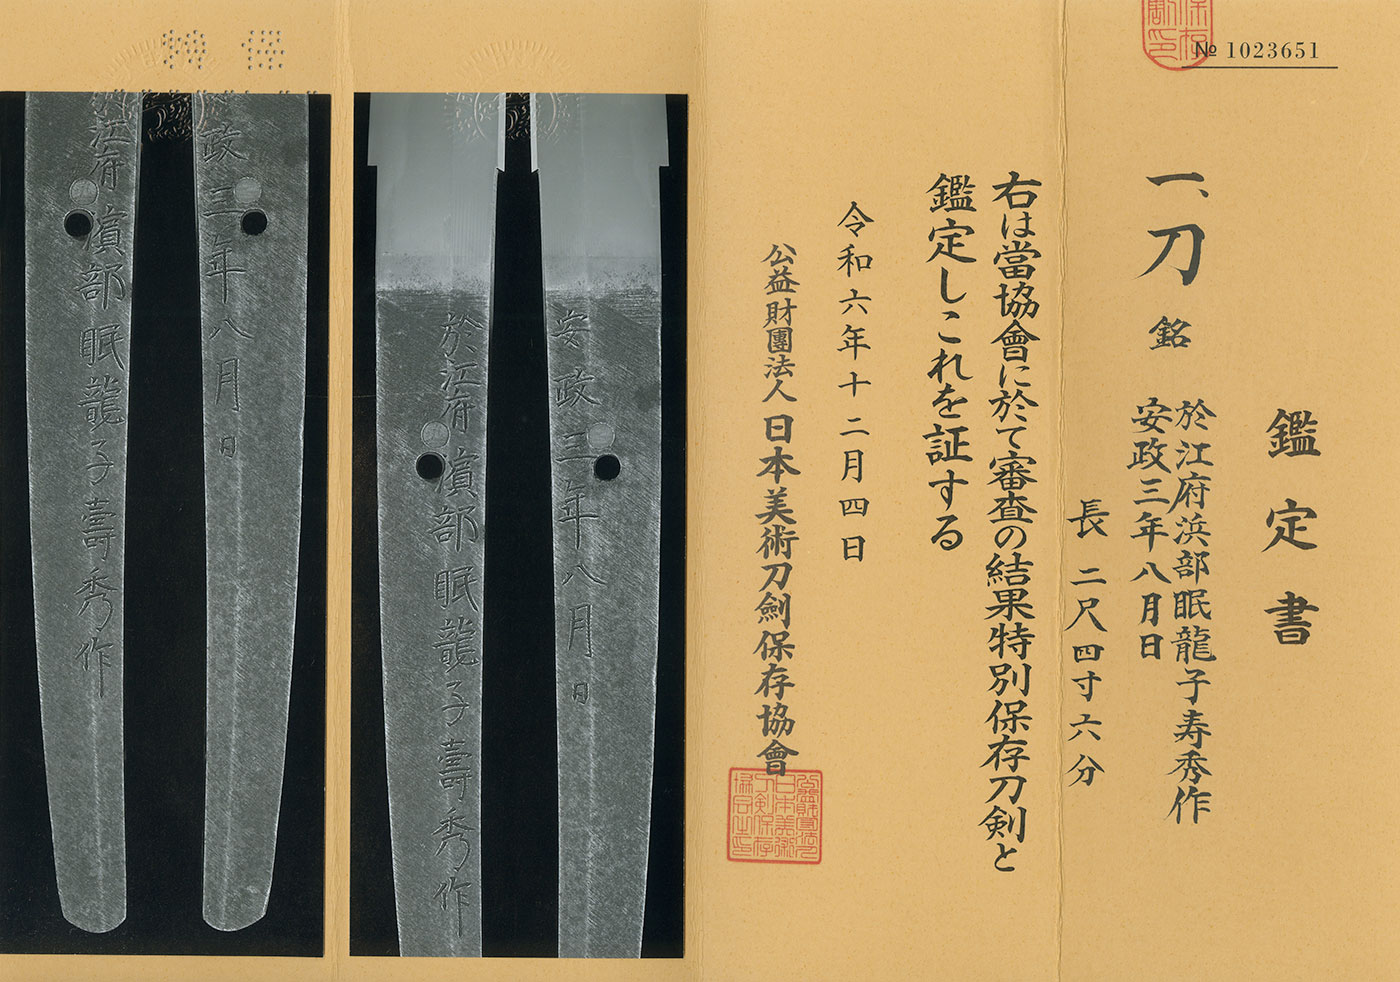 № 1023651
鑑定書
一、刀 銘 於江府浜部眠龍子寿秀作
安政三年八月日
長 二尺四寸六分
右は當協會に於て審査の結果特別保存刀剣と
鑑定しこれを証する
令和六年十二月四日
公益財團法人日本美術刀劍保存協會
安政三年八月日
於江府濵部眠龍子壽秀作
政三年八月日
江府濵部眠龍子壽秀作